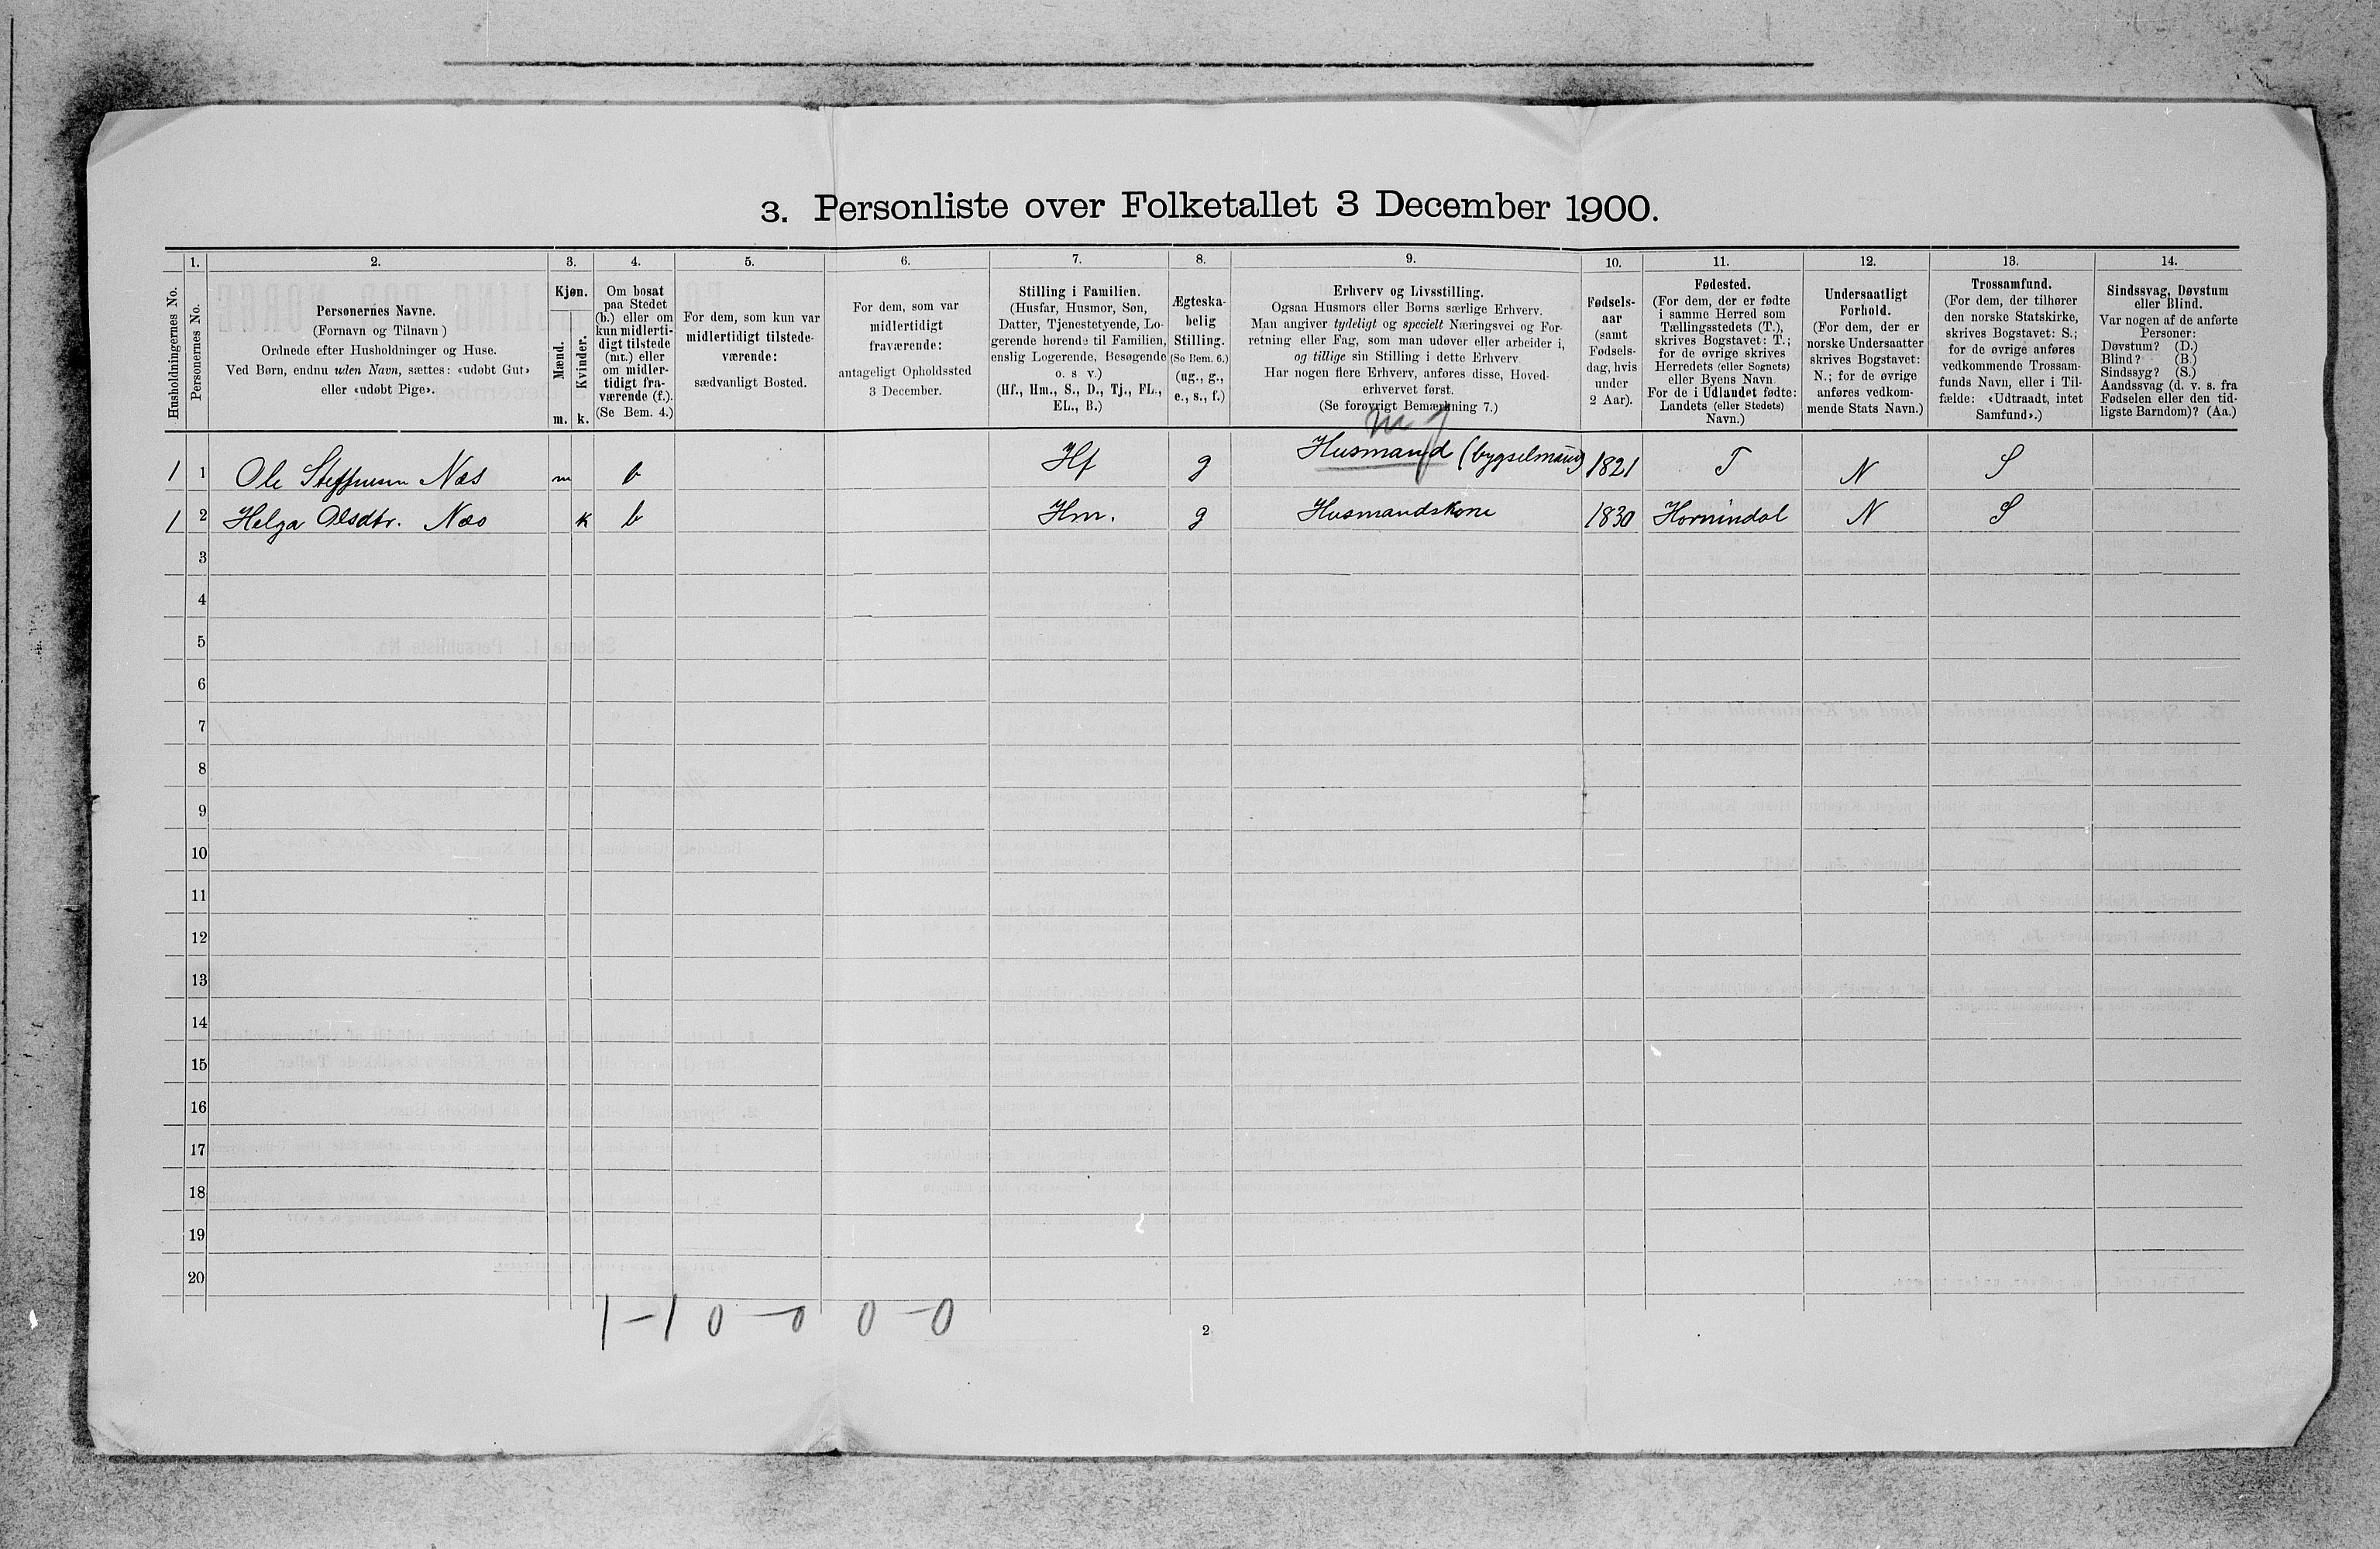 3. Personliste over Folketallet 3 December 1900.
1. 2. 3. 4. 5. 6. 7. 8. 9. 10. 11. 12. 13. 14.
Husholdningernes No.
Personernes No.
Personernes Navne.
(Fornavn og Tilnavn)
Ordnede efter Husholdninger og Huse.
Ved Børn, endnu uden Navn, sættes: «udøbt Gut»
eller «udøbt Pige».
Kjøn.
Mænd.
Kvinder.
m. k.
Om bosat
paa Stedet
(b.) eller om
kun midlerti-
digt tilstede
(mt.) eller
om midler-
tidigt fra-
værende (f.).
(Se Bem. 4.)
For dem, som kun var
midlertidigt tilstede-
værende:
sædvanligt Bosted.
For dem, som var
midlertidigt
fraværende:
antageligt Opholdssted
3 December.
Stilling i Familien.
(Husfar, Husmor, Søn,
Datter, Tjenestetyende, Lo-
gerende hørende til Familien,
enslig Logerende, Besøgende
o. s v.)
(Hf., Hm., S., D., Tj., FL.,
EL., B.)
Ægteska-
belig
Stilling.
(Se Bem. 6.)
(ug., g.,
e., s., f.)
Erhverv og Livsstilling.
Ogsaa Husmors eller Børns særlige Erhverv.
Man angiver tydeligt og specielt Næringsvei og For-
retning eller Fag, som man udøver eller arbeider i,
og tillige sin Stilling i dette Erhverv.
Har nogen flere Erhverv, anføres disse, Hoved-
erhvervet først.
(Se forøvrigt Bemærkning 7.)
Fødsels-
aar
(samt
Fødsels-
dag, hvis
under
2 Aar).
Fødested.
(For dem, der er fødte
i samme Herred som
Tællingsstedets (T.),
skrives Bogstavet: T.;
for de øvrige skrives
Herredets (eller Sognets)
eller Byens Navn.
For de i Udlandet fødte:
Landets (eller Stedets)
Navn.)
Undersaatligt
Forhold.
(For dem, der er
norske Undersaatter
skrives Bogstavet:
N.; for de øvrige
anføres vedkom-
mende Stats Navn.)
Trossamfund.
(For dem, der tilhører
den norske Statskirke,
skrives Bogstavet: S.;
for de øvrige anføres
vedkommende Trossam-
funds Navn, eller i Til-
fælde: «Udtraadt, intet
Samfund».)
Sindssvag, Døvstum
eller Blind.
Var nogen af de anførte
Personer:
Døvstum? (D.)
Blind? (B.)
Sindssyg? (S.)
Aandssvag (d. v. s. fra
Fødselen eller den tid-
ligste Barndom)? (Aa.)
1 1 Ole Steffensen Næs m b Hf g Husmand (bygselmand) 1821 T N S
1 2 Helga Olsdtr. Næs k b Hm. g Husmandskone 1830 Hornindal N S
3
4
5
6
7
8
9
10
11
12
13
14
15
16
17
18
19
20
1-1 0-0 0-0
2